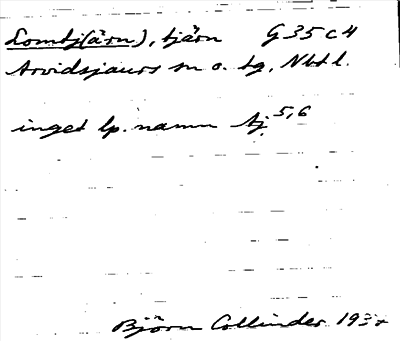 Lomtj(ärn), tjärn G 35 c 4
Arvidsjaurs sn o. tg, Nbtl.
inget lp. namn Aj. 5,6
Björn Collinder 193